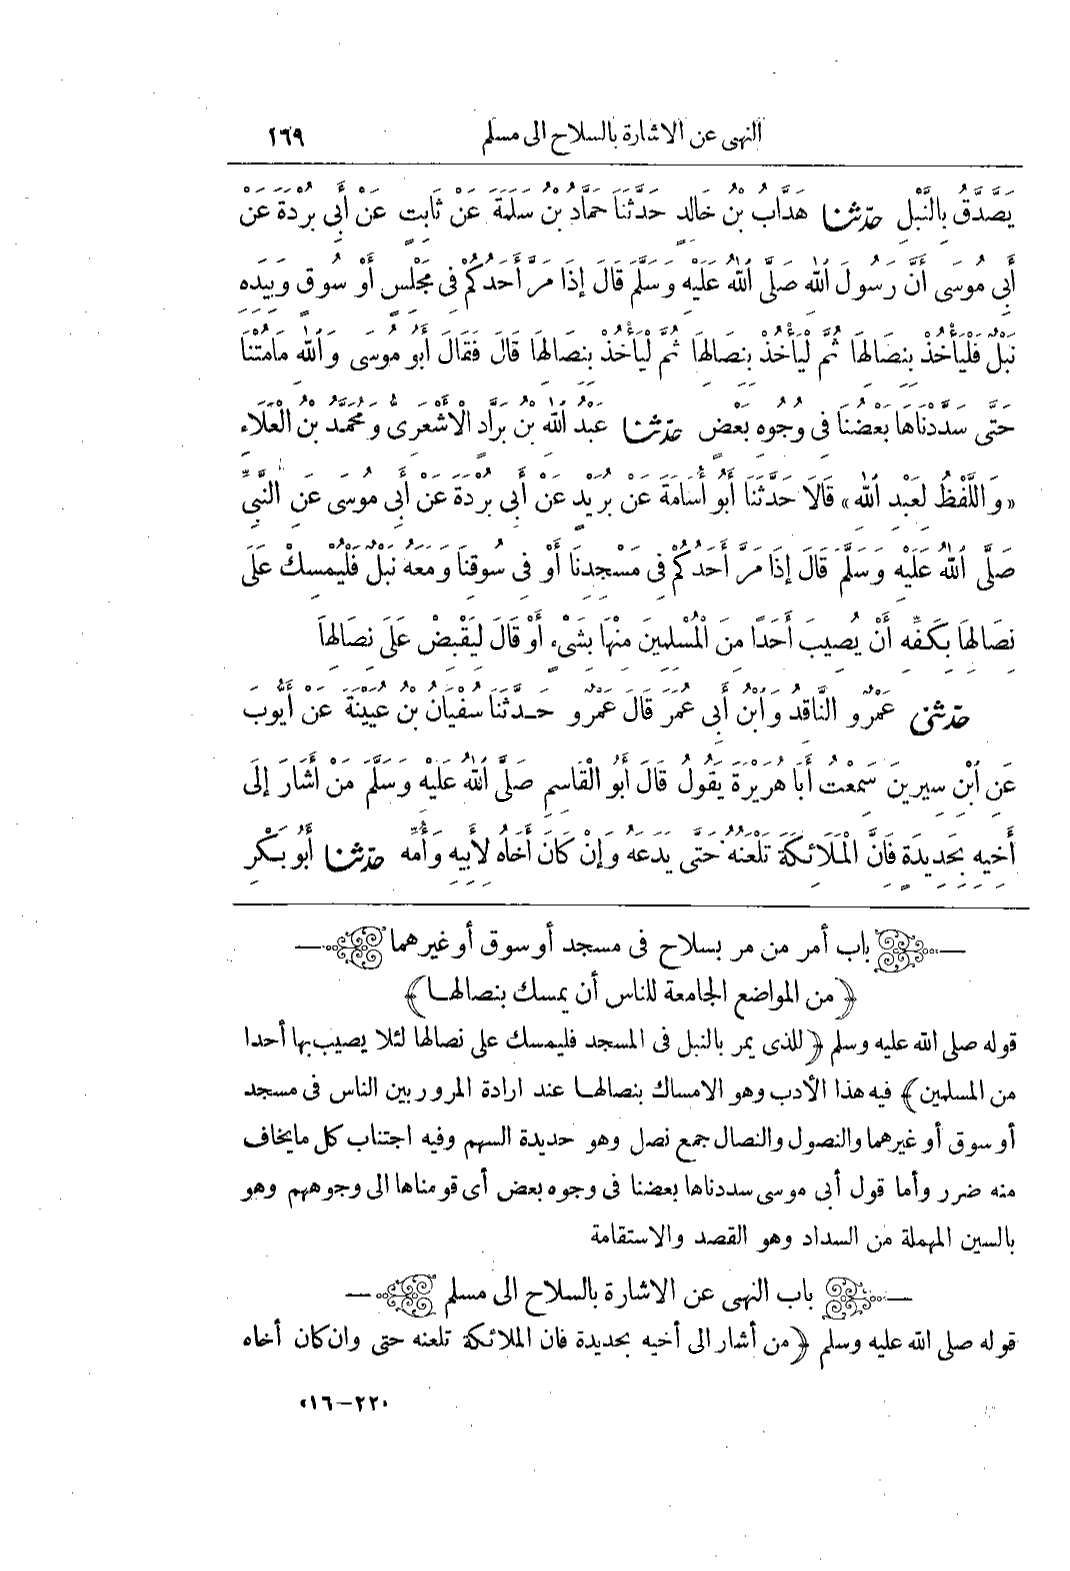 النهى عن الاشارة بالسلاح الى مسلم ١٦٩
يَصَّدَّقُ بِالنَّبْلِ حدثنا هَدَّابُ بْنُ خَالِدٍ حَدَّثَنَا حَمَّادُ بْنُ سَلَمَةَ عَنْ ثَابِتٍ عَنْ أَبِى بُرْدَةَ عَنْ
أَبِى مُوسَى أَنَّ رَسُولَ اللهِ صَلَّى اللهُ عَلَيْهِ وَسَلَّمَ قَالَ إِذَا مَرَّ أَحَدُكُمْ فِى مَجْلِسٍ أَوْ سُوقٍ وَبِيَدِهِ
نَبْلٌ فَلْيَأْخُذْ بِنِصَالِهَا ثُمَّ لْيَأْخُذْ بِنِصَالِهَا ثُمَّ لْيَأْخُذْ بِنِصَالِهَا قَالَ فَقَالَ أَبُو مُوسَى وَاللهِ مَامُتْنَا
حَتَّى سَدَّدْنَاهَا بَعْضُنَا فِى وُجُوهِ بَعْضٍ حدثنا عَبْدُ اللهِ بْنُ بَرَّادٍ الْأَشْعَرِىُّ وَمُحَمَّدُ بْنُ الْعَلَاءِ
«وَاللَّفْظُ لِعَبْدِ اللهِ» قَالَا حَدَّثَنَا أَبُو أُسَامَةَ عَنْ بُرَيْدٍ عَنْ أَبِى بُرْدَةَ عَنْ أَبِى مُوسَى عَنِ النَّبِىِّ
صَلَّى اللهُ عَلَيْهِ وَسَلَّمَ قَالَ إِذَا مَرَّ أَحَدُكُمْ فِى مَسْجِدِنَا أَوْ فِى سُوقِنَا وَمَعَهُ نَبْلٌ فَلْيُمْسِكْ عَلَى
نِصَالِهَا بِكَفِّهِ أَنْ يُصِيبَ أَحَدًا مِنَ الْمُسْلِمِينَ مِنْهَا بِشَىْءٍ أَوْ قَالَ لِيَقْبِضْ عَلَى نِصَالِهَا
حدثنى عَمْرٌو النَّاقِدُ وَابْنُ أَبِى عُمَرَ قَالَ عَمْرٌو حَدَّثَنَا سُفْيَانُ بْنُ عُيَيْنَةَ عَنْ أَيُّوبَ
عَنِ ابْنِ سِيرِينَ سَمِعْتُ أَبَا هُرَيْرَةَ يَقُولُ قَالَ أَبُو الْقَاسِمِ صَلَّى اللهُ عَلَيْهِ وَسَلَّمَ مَنْ أَشَارَ إِلَى
أَخِيهِ بِحَدِيدَةٍ فَانَّ الْمَلَائِكَةَ تَلْعَنُهُ حَتَّى يَدَعَهُ وَإِنْ كَانَ أَخَاهُ لِأَبِيهِ وَأُمِّهِ حدثنا أَبُو بَكْرِ
باب أمر من مر بسلاح فى مسجد أو سوق أو غيرهما
﴿ من المواضع الجامعة للناس أن يمسك بنصالها ﴾
قوله صلى الله عليه وسلم ﴿ للذى يمر بالنبل فى المسجد فليمسك على نصالها لئلا يصيب بها أحدا
من المسلمين ﴾ فيه هذا الأدب وهو الامساك بنصالها عند ارادة المرور بين الناس فى مسجد
أو سوق أو غيرهما والنصول والنصال جمع نصل وهو حديدة السهم وفيه اجتناب كل مايخاف
منه ضرر وأما قول أبى موسى سددناها بعضنا فى وجوه بعض أى قومناها الى وجوههم وهو
بالسين المهملة من السداد وهو القصد والاستقامة
باب النهى عن الاشارة بالسلاح الى مسلم
قوله صلى الله عليه وسلم ﴿ من أشار الى أخيه بحديدة فان الملائكة تلعنه حتى وان كان أخاه
«٢٢ – ١٦»